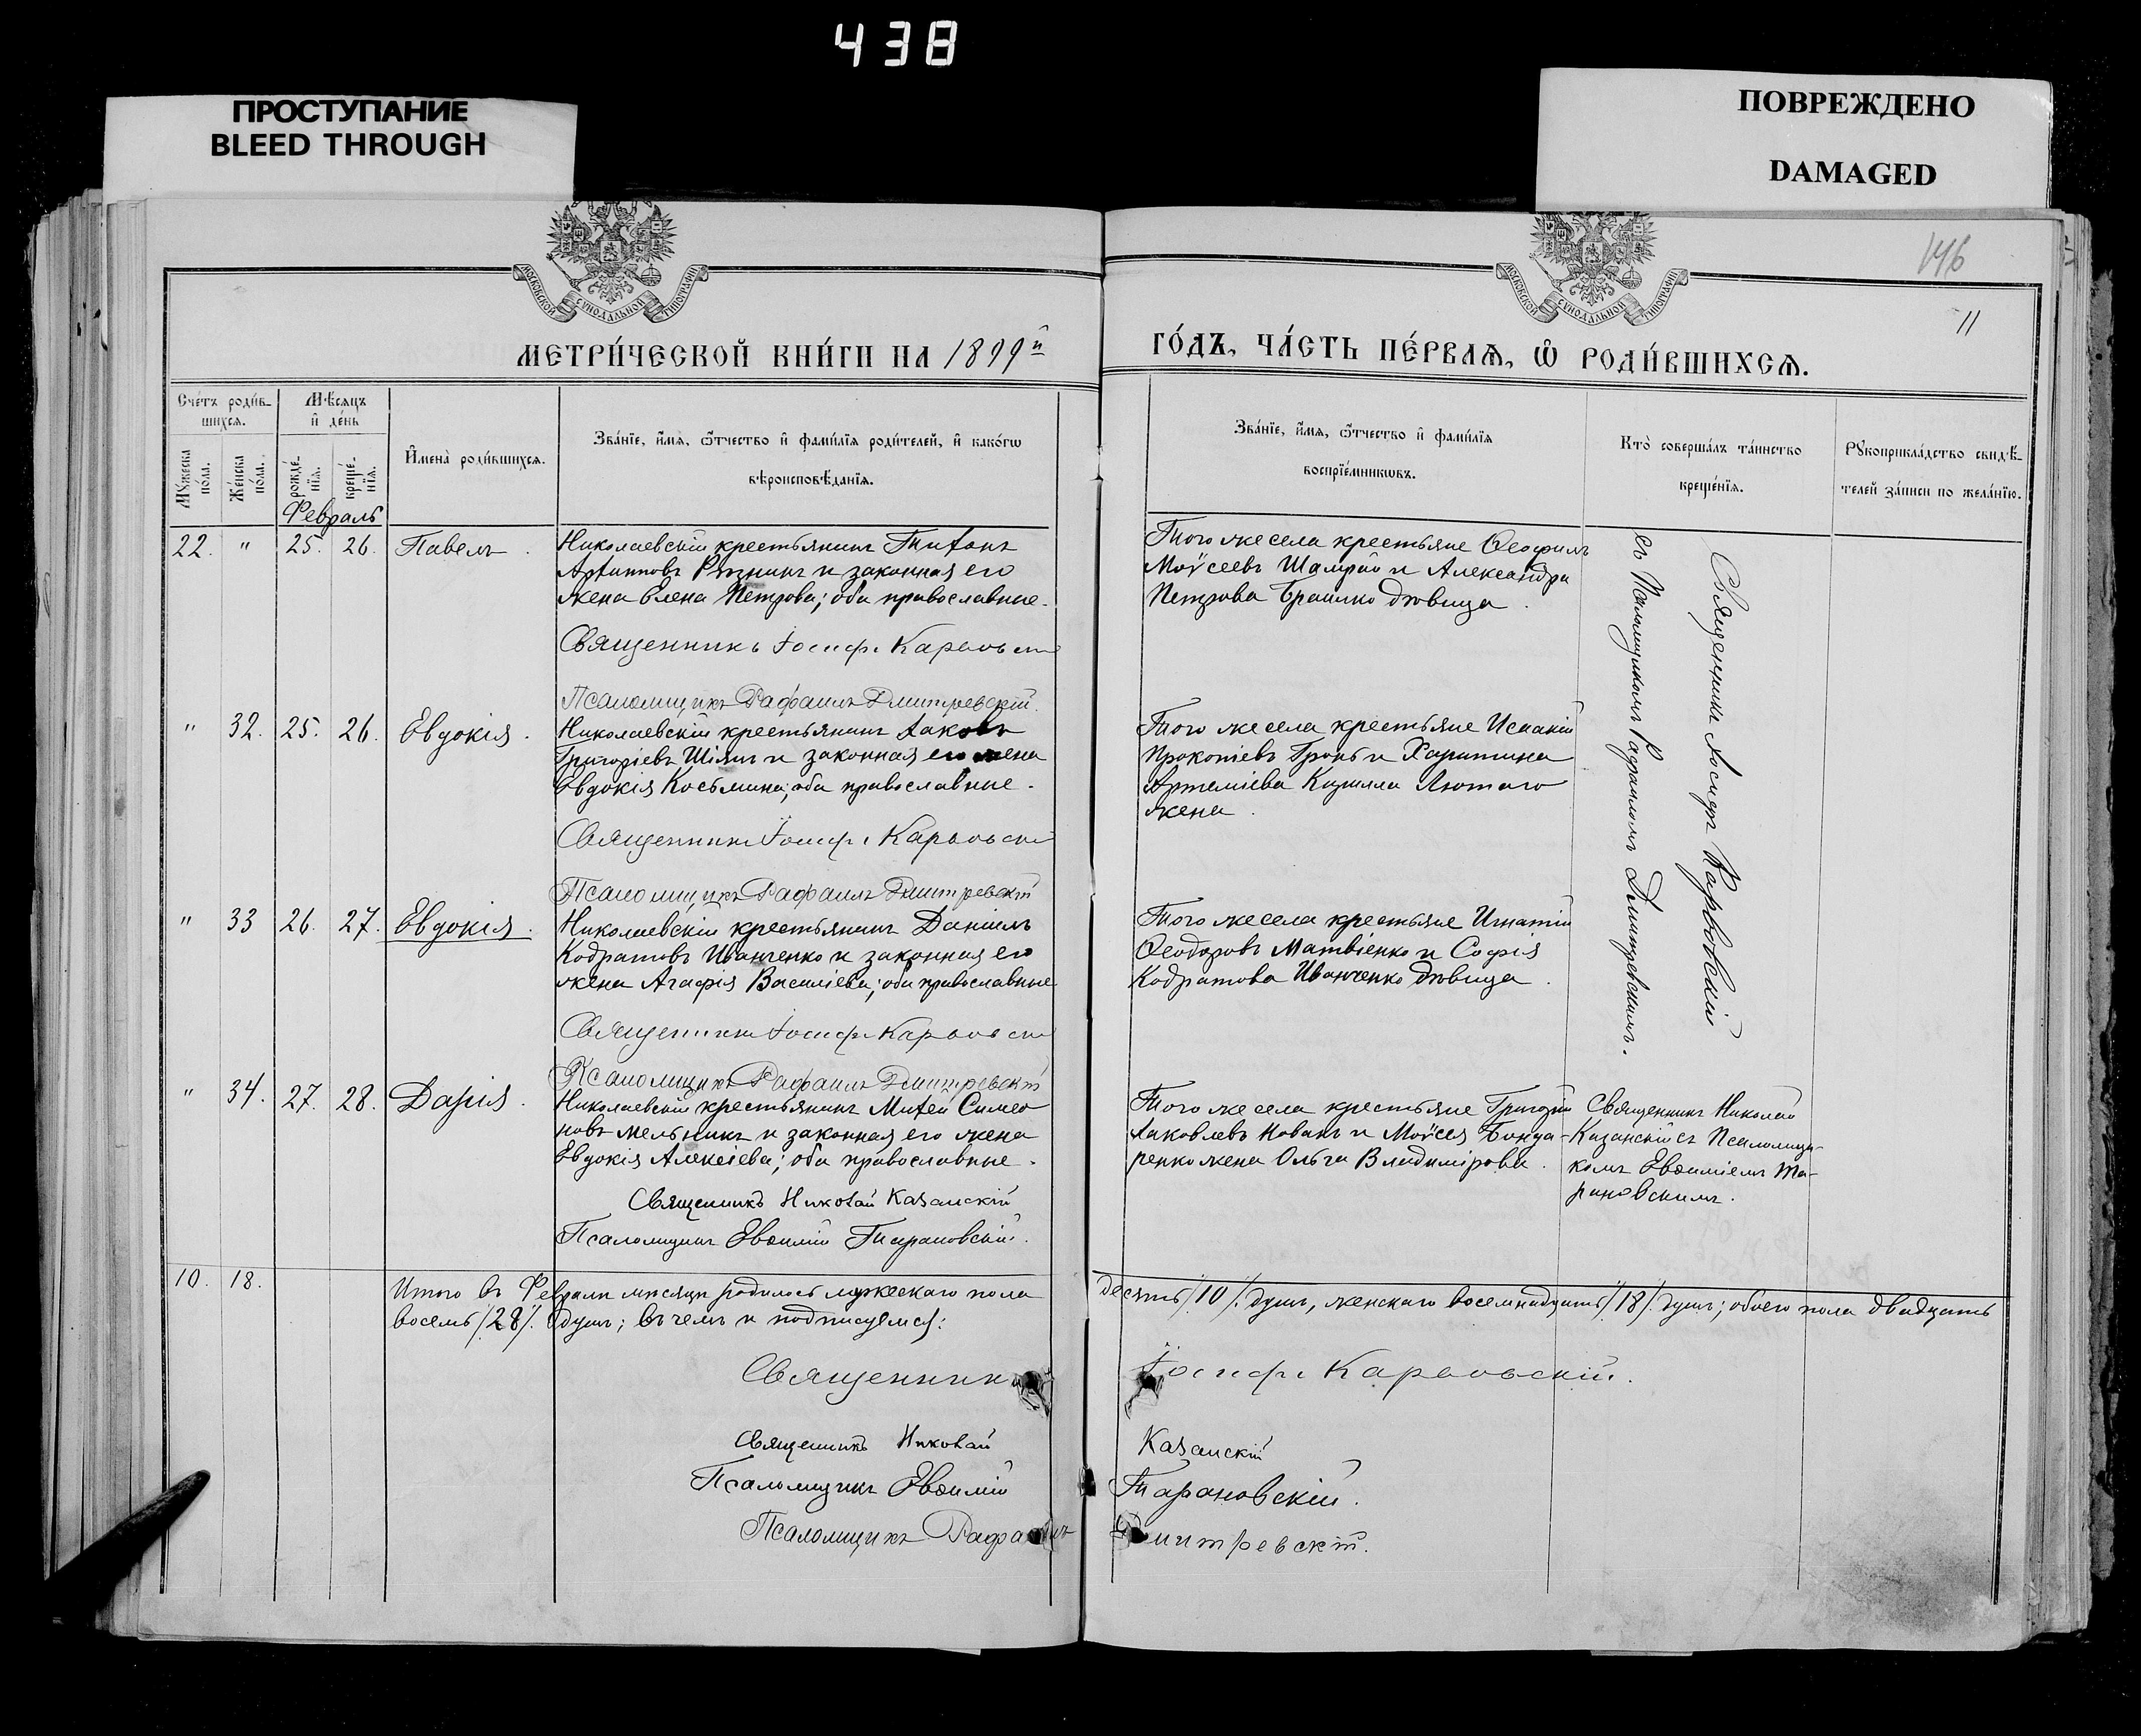 438
ПРОСТУПАНИЕ
BLEED THROUGH
ПОВРЕЖДЕНО
DAMAGED
146
11
МОСКОВСКОЙ СѴНОДАЛЬНОЙ ТИПОГРАФІИ
МОСКОВСКОЙ СѴНОДАЛЬНОЙ ТИПОГРАФІИ
МЕТРИ́ЧЕСКОЙ КНИ́ГИ НА 1899й
ГО́ДЪ, ЧА́СТЬ ПЕ́РВАѦ, Ѡ РОДИ́ВШИХСѦ.
Сче́тъ роди́в-
шихсѧ.
Мꙋ́жеска по́ла.
Же́нска по́ла.
Мѣ́сѧцъ и҆ де́нь
рожде́-
нїѧ.
креще́-
нїѧ.
И҆мена̀ роди́вшихсѧ.
Зва́нїе, и҆́мѧ, ѻ҆́тчество и҆ фами́лїѧ роди́телей, и҆ како́гѡ
вѣроисповѣ́данїѧ.
Зва́нїе, и҆́мѧ, ѻ҆́тчество и҆ фами́лїѧ
воспрїе́мникѡвъ.
Кто̀ соверша́лъ та́инство
креще́нїѧ.
Рꙋкоприкла́дство свидѣ́-
телей за́писи по жела́нїю.
Февраль
22. " 25. 26. Павелъ.
Николаевскій крестьянинъ Титонъ
Рѣзникъ и законная его
жена Елена Петрова; оба православные.
Священникъ Іосифъ Карповскій
Псаломщикъ Рафаилъ Дмитревскій.
Того же села крестьяне Ѳеофилъ
Моѵсеевъ Шамрай и Александра
Петрова Браилко дѣвица.
" 32. 25. 26. Евдокія.
Николаевскій крестьянинъ Іаковъ
Григоріевъ Шіянъ и законная его жена
Евдокія Косьмина; оба православные.
Священникъ Іосифъ Карповскій
Псаломщикъ Рафаилъ Дмитревскій
Того же села крестьяне Исаакій
Прокопіевъ Гронь и Харитина
Артеміева Кирилла Лютаго
жена.
" 33 26. 27. Евдокія.
Николаевскій крестьянинъ Даніилъ
Кодратовъ Иванченко и законная его
жена Агафія Василіева; оба православные
Священникъ Іосифъ Карповскій
Псаломщикъ Рафаилъ Дмитревскій
Того же села крестьяне Игнатій
Ѳеодоровъ Матвіенко и Софія
Кодратова Иванченко дѣвица.
Священникъ Іосифъ Карповскій
съ Псаломщикомъ Рафаиломъ Дмитревскимъ.
" 34. 27. 28. Дарія.
Николаевскій крестьянинъ Миѳей Симео
новъ Мельникъ и законная его жена
Евдокія Алексіева; оба православные.
Священникъ Николай Казанскій
Псаломщикъ Евѳимій Тарановскій.
Того же села крестьяне Григорій
Іаковлевъ Новакъ и Моѵсея Бонда-
ренко жена Ольга Владимірова.
Священникъ Николай
Казанскій съ Псаломщи-
комъ Евѳиміемъ Та-
рановскимъ.
10. 18.
Итого въ Февралѣ мѣсяцѣ родилось мужескаго пола десять /10/. душъ, женскаго восемнадцать /18/ душъ; обоего пола двадцать
восемь /28/. душъ; въ чемъ и подписуемся:
Священникъ Іосифъ Карповскій.
Священникъ Николай Казанскій
Псаломщикъ Евѳимій Тарановскій.
Псаломщикъ Рафаилъ Дмитревскій.